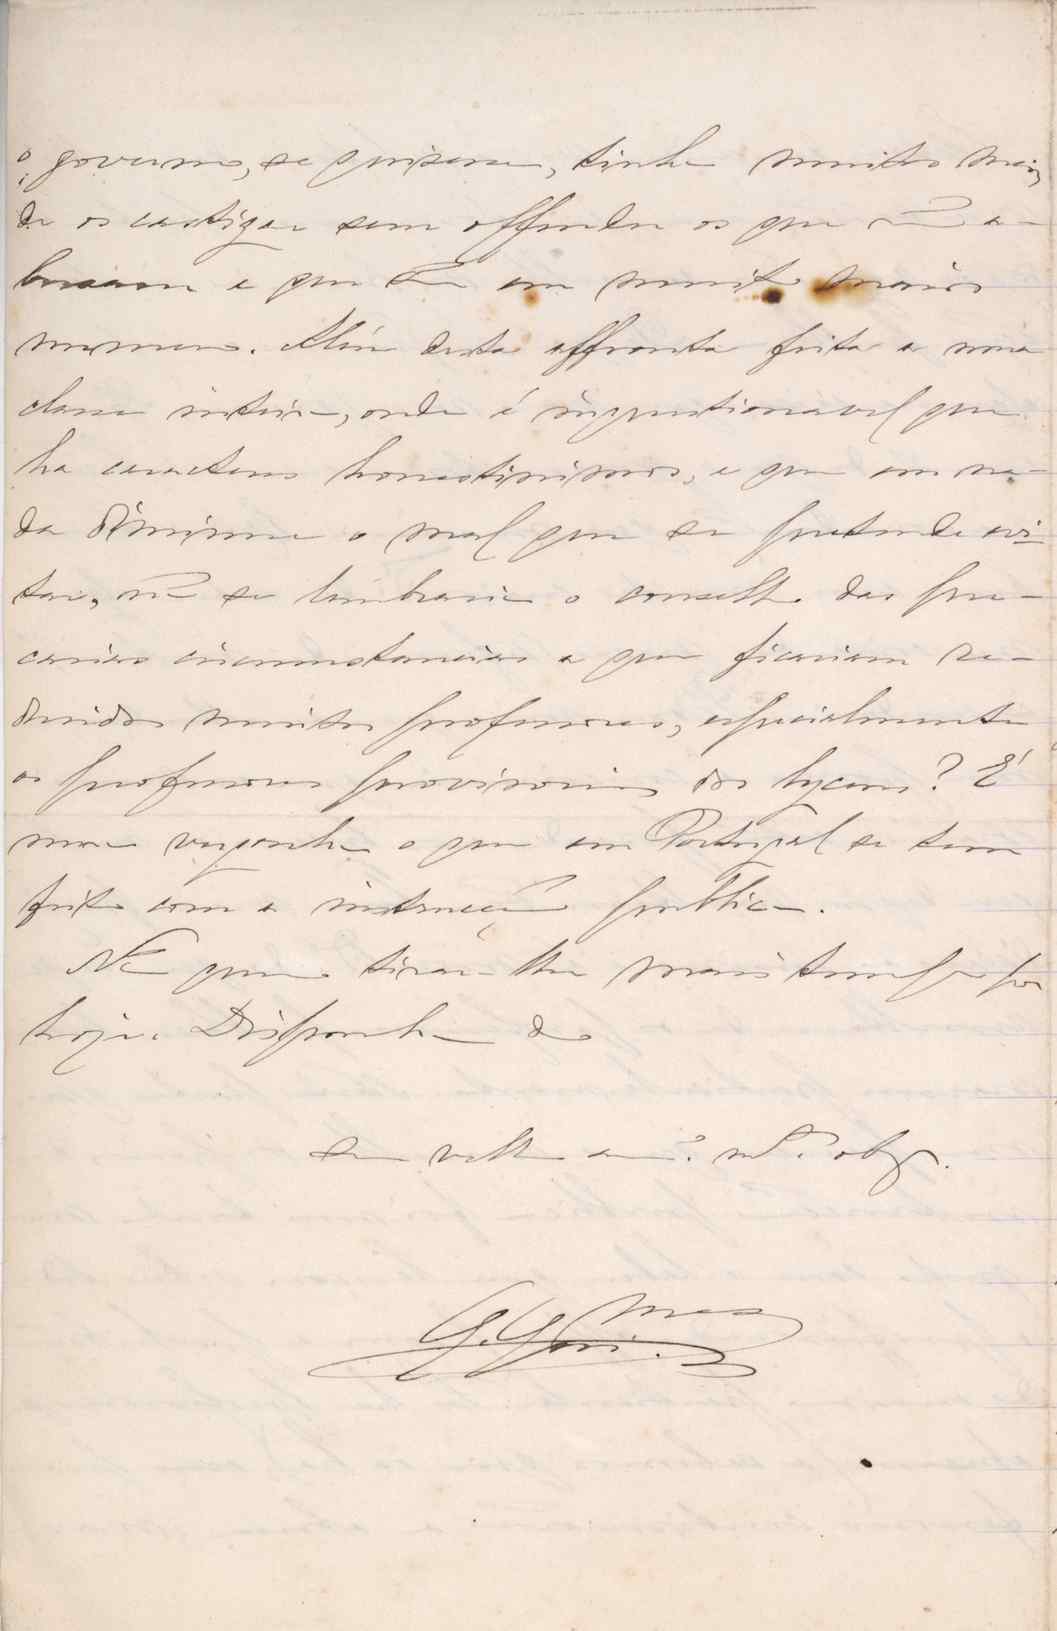 o governo, se quisesse, tinha muitos meios
de os castigar sem offender os que não a-
busavam e que são em muito maior
numero. Alem desta affronta feita a uma
classe inteira, onde é inquestionavel que
ha caracteres honestissimos, e que em na-
da diminue o mal que se pretende evi-
tar, não se lembraria o conselho das pre-
carias circumstancias a que ficariam re-
duzidos muitos professores, especialmente
os professores provisorios dos lyceus? É
uma vergonha o que em Portugal se tem
feito com a instrucção publica.
Não quero tirar-lhe mais tempo por
hoje. Disponha do
seu velho am.º m.to obg.
G. Gui.